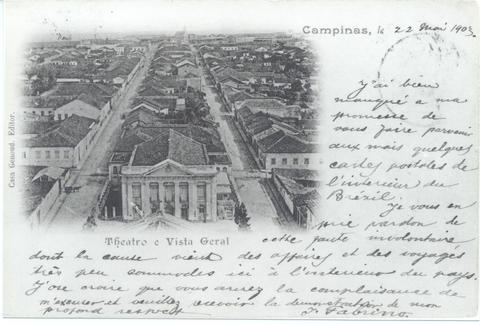 Campinas, le 22 Mai 1903
J'ai bien
manqué a ma
promesse de
vous faire parvenir
aux mois quelques
cartes postales de
l'intérieur du
Brézil.
Je vous en
prie pardon de
cette faute involontaire
dont la cause vient des affaires et des voyages
très peu commodes ici à l'intérieur du pays.
J'ose croire que vous aurez la complaisance de
m'excuser et veuillez recevoir la demonstration de mon
profond respect
Fabrino
Casa Genoud. Editor.
Theatro e Vista Geral